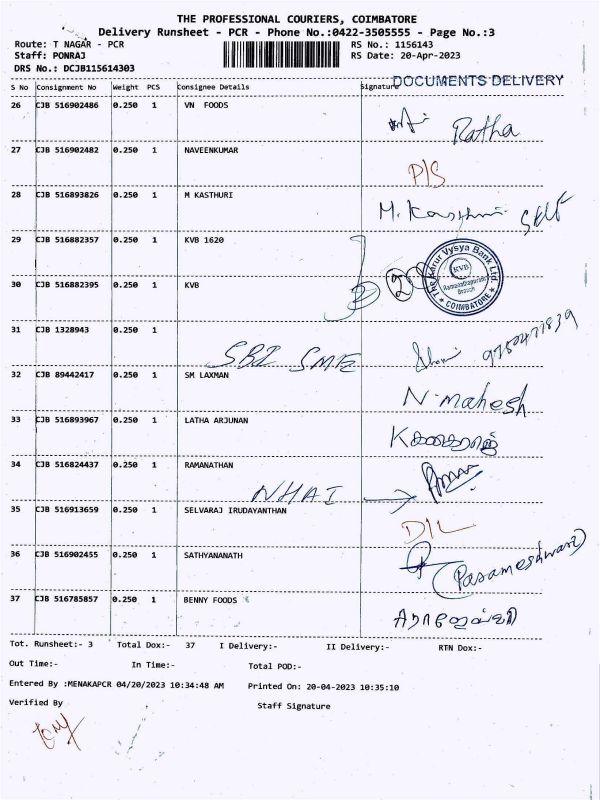 THE PROFESSIONAL COURIERS, COIMBATORE
Delivery Runsheet - PCR - Phone No.:0422-3505555 - Page No.:3
Route: T NAGAR - PCR RS No.: 1156143
Staff: PONRAJ RS Date: 20-Apr-2023
DRS No.: DCJB115614303
DOCUMENTS DELIVERY
S No Consignment No Weight PCS Consignee Details Signature
26 CJB 516902486 0.250 1 VN FOODS
Ratha
27 CJB 516902482 0.250 1 NAVEENKUMAR
P/S
28 CJB 516893826 0.250 1 M KASTHURI
M. Kasthuri Self
29 CJB 516882357 0.250 1 KVB 1620
The Karur Vysya Bank Ltd.
KVB
Branch
COIMBATORE
30 CJB 516882395 0.250 1 KVB
2
31 CJB 1328943 0.250 1
SBI SME
32 CJB 89442417 0.250 1 SM LAXMAN
N. mahesh
33 CJB 516893967 0.250 1 LATHA ARJUNAN
34 CJB 516824437 0.250 1 RAMANATHAN
NHAI
35 CJB 516913659 0.250 1 SELVARAJ IRUDAYANTHAN
D/L
36 CJB 516902455 0.250 1 SATHYANANATH
(Parameshwari)
37 CJB 516785857 0.250 1 BENNY FOODS
Tot. Runsheet:- 3 Total Dox:- 37 I Delivery:- II Delivery:- RTN Dox:-
Out Time:- In Time:- Total POD:-
Entered By :MENAKAPCR 04/20/2023 10:34:48 AM Printed On: 20-04-2023 10:35:10
Verified By Staff Signature